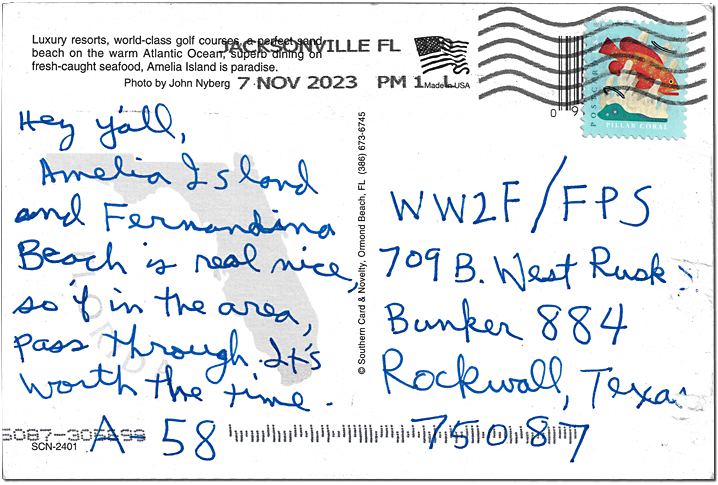 Luxury resorts, world-class golf courses, a perfect sand
beach on the warm Atlantic Ocean, superb dining on
fresh-caught seafood, Amelia Island is paradise.
Photo by John Nyberg
JACKSONVILLE FL
7 NOV 2023 PM 1 L
Made in USA
POSTCARD
PILLAR CORAL
Hey y'all,
Amelia Island
and Fernandina
Beach is real nice,
so if in the area,
pass through. It's
worth the time.
A-58
SCN-2401
FLORIDA
© Southern Card & Novelty, Ormond Beach, FL (386) 673-6745
WW2F/FPS
709 B. West Rusk
Bunker 884
Rockwall, Texas
75087